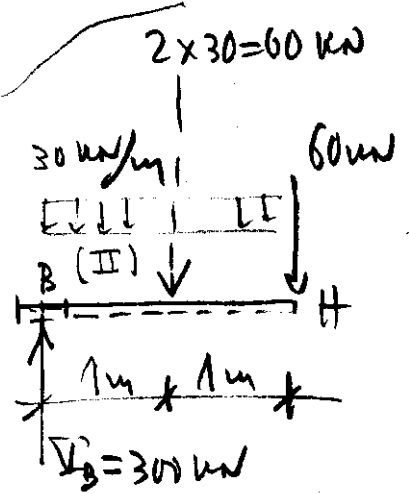 2×30=60 kN
30 kN/m
60kN
(II)
B
H
1m 1m
V_B=300 kN